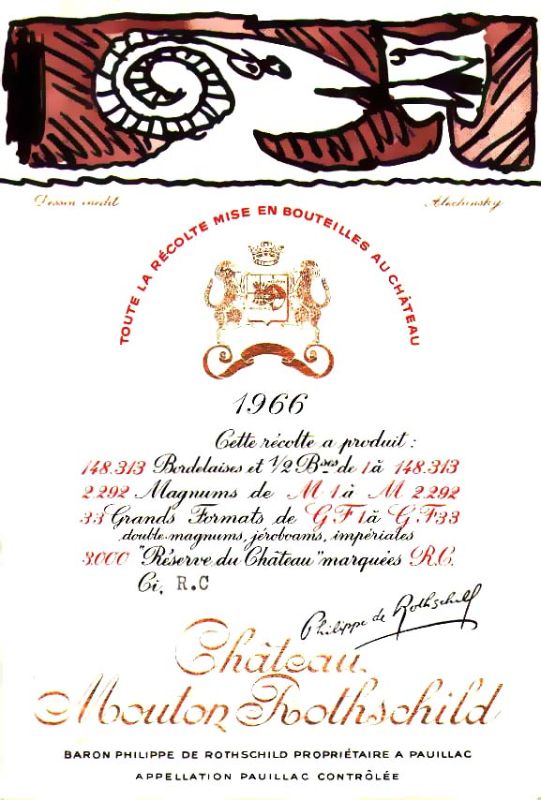 Dessin inédit
Alechinsky
TOUTE LA RÉCOLTE MISE EN BOUTEILLES AU CHÂTEAU
1966
Cette récolte a produit :
148.313 Bordelaises et 1/2 Bses de 1 à 148.313
2.292 Magnums de M 1 à M 2.292
33 Grands Formats de G.F 1 à G.F 33
double magnums, jéroboams, impériales
3.000 "Réserve du Château" marquées R.C.
Ci, R.C
Philippe de Rothschild
Château
Mouton Rothschild
BARON PHILIPPE DE ROTHSCHILD PROPRIÉTAIRE A PAUILLAC
APPELLATION PAUILLAC CONTRÔLÉE